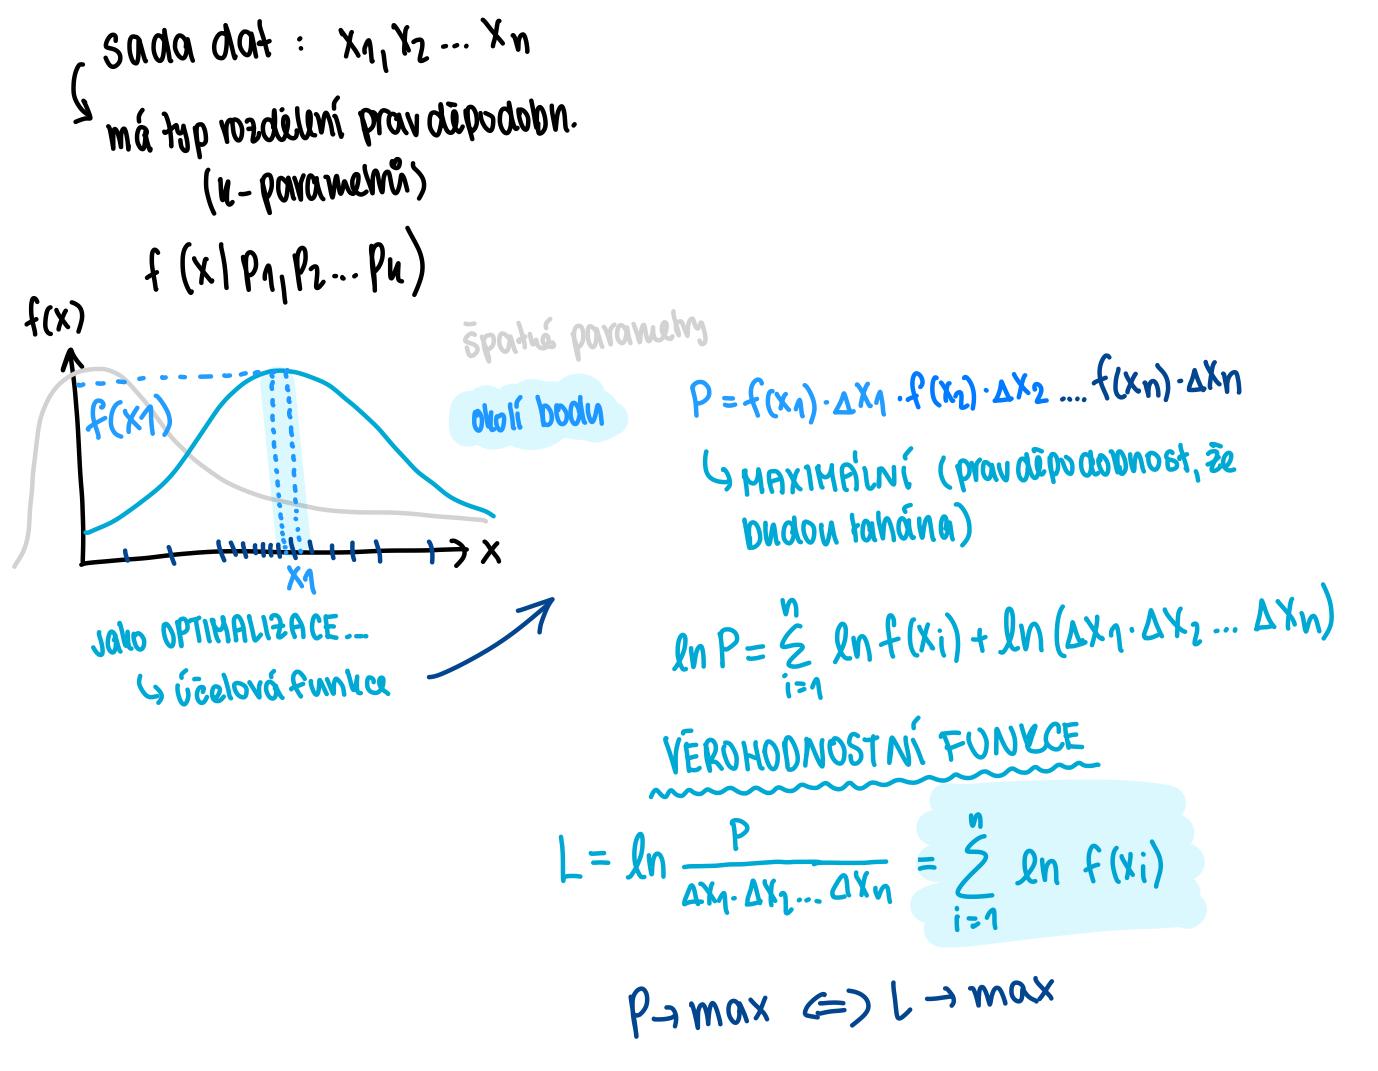 sada dat : x₁, x₂ ... xₙ
má typ rozdělení pravděpodobn.
(k-parametrů)
f (x | p₁, p₂ ... pₖ)
f(x)
špatné parametry
okolí bodu
f(x₁)
x₁
x
jako OPTIMALIZACE...
↳ účelová funkce
P = f(x₁) · Δx₁ · f(x₂) · Δx₂ .... f(xₙ) · Δxₙ
↳ MAXIMÁLNÍ (pravděpodobnost, že
budou tahána)
ln P = ∑ᵢ₌₁ⁿ ln f(xᵢ) + ln (Δx₁ · Δx₂ ... Δxₙ)
VĚROHODNOSTNÍ FUNKCE
L = ln P / (Δx₁ · Δx₂ ... Δxₙ) = ∑ᵢ₌₁ⁿ ln f(xᵢ)
P → max ⇔ L → max